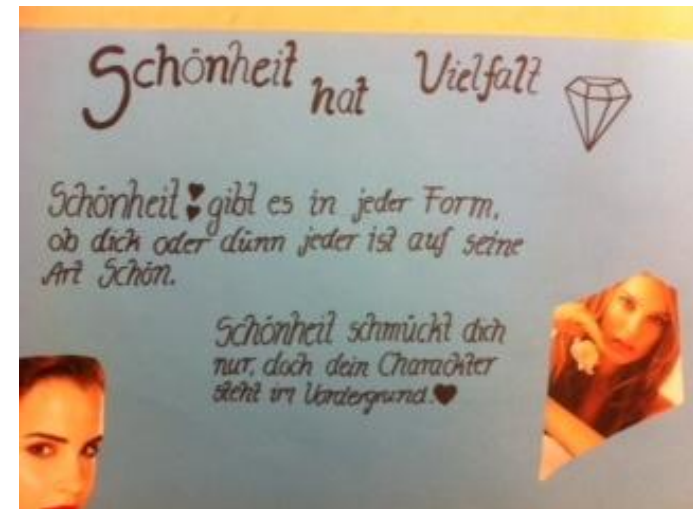 Schönheit hat Vielfalt
Schönheit gibt es in jeder Form,
ob dick oder dünn jeder ist auf seine
Art Schön.
Schönheit schmückt dich
nur, doch dein Charackter
steht im Vordergrund.